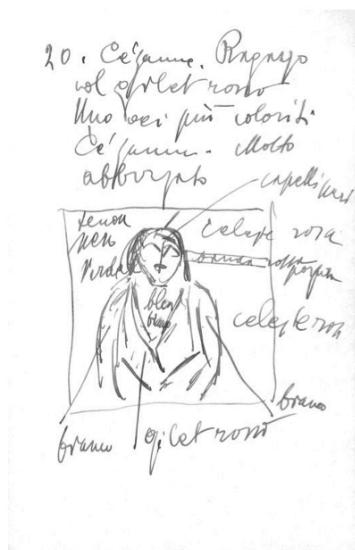 20. Cézanne. Ragazzo
col gilet rosso
Uno dei più coloriti
Cézanne. Molto
abbozzato
capelli neri
celeste rosa
verde
banda rossa
bleu
celeste rosa
bianco
bianco
gilet rosso